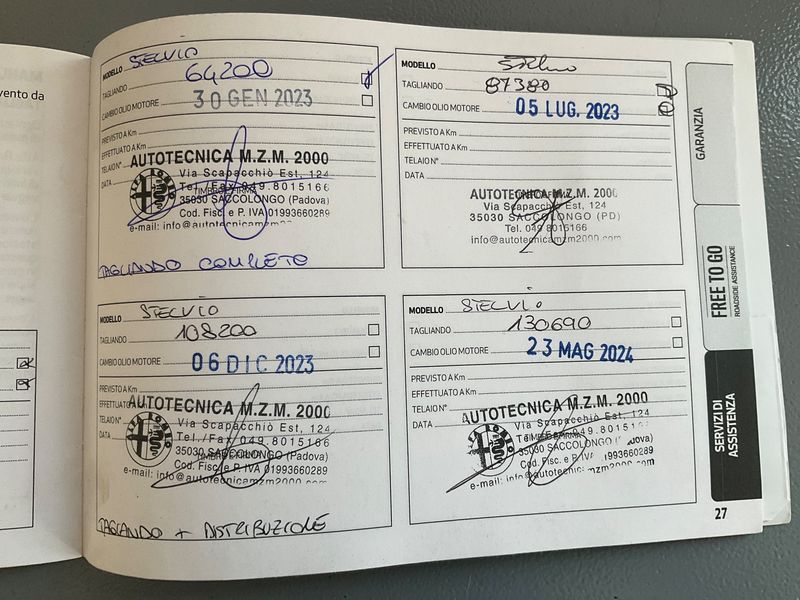 MANU
vento da
MODELLO STELVIO
TAGLIANDO 64200
CAMBIO OLIO MOTORE 30 GEN 2023
PREVISTO A Km
EFFETTUATO A Km
TELAIO N°
DATA
AUTOTECNICA M.Z.M. 2000
Via Scapacchiò Est, 124
Tel./Fax 049.8015166
TIMBRO E FIRMA
35030 SACCOLONGO (Padova)
Cod. Fisc. e P. IVA 01993660289
e-mail: info@autotecnicamzm2000
ALFA ROMEO
TAGLIANDO COMPLETO
MODELLO Stelvio
TAGLIANDO 87380
CAMBIO OLIO MOTORE 05 LUG. 2023
PREVISTO A Km
EFFETTUATO A Km
TELAIO N°
DATA
AUTOTECNICA M.Z.M. 2000
Via Scapacchiò Est, 124
35030 SACCOLONGO (PD)
Tel. 049 8015166
info@autotecnicamzm2000.com
MODELLO STELVIO
TAGLIANDO 108200
CAMBIO OLIO MOTORE 06 DIC 2023
PREVISTO A Km
EFFETTUATO
TELAIO N°
DATA
AUTOTECNICA M.Z.M. 2000
Via Scapacchiò Est, 124
Tel./Fax 049.8015166
35030 SACCOLONGO (Padova)
TIMBRO E FIRMA
Cod. Fisc. e P. IVA 01993660289
e-mail: info@autotecnicamzm2000.com
ALFA ROMEO
TAGLIANDO + DISTRIBUZIONE
MODELLO STELVIO
TAGLIANDO 130690
CAMBIO OLIO MOTORE 23 MAG 2024
PREVISTO A Km
EFFETTUATO A Km
TELAIO N°
DATA
AUTOTECNICA M.Z.M. 2000
Via Scapacchiò Est, 124
Tel./Fax 049.8015166
TIMBRO E FIRMA
35030 SACCOLONGO (Padova)
Cod. Fisc. e P. IVA 01993660289
e-mail: info@autotecnicamzm2000.com
ALFA ROMEO
GARANZIA
FREE TO GO
ROADSIDE ASSISTANCE
SERVIZI DI
ASSISTENZA
27